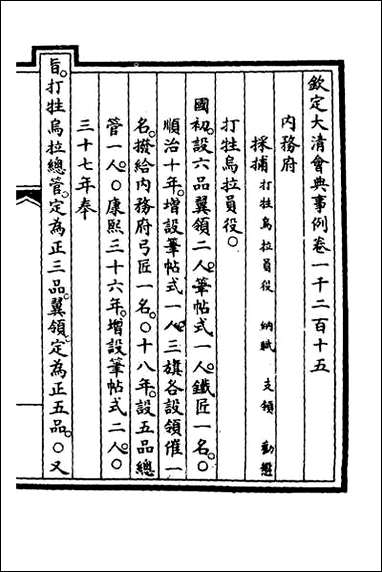 欽定大清會典事例卷一千二百十五
內務府
採捕 打牲烏拉員役 納賦 支領 勸懲
打牲烏拉員役。
國初。設六品翼領二人。筆帖式一人。鐵匠一名。○
順治十年。增設筆帖式一人。三旗各設領催一
名。撥給內務府弓匠一名。○十八年。設五品總
管一人。○康熙三十六年。增設筆帖式二人。○
三十七年奉
旨。打牲烏拉總管。定為正三品。翼領。定為正五品。○又